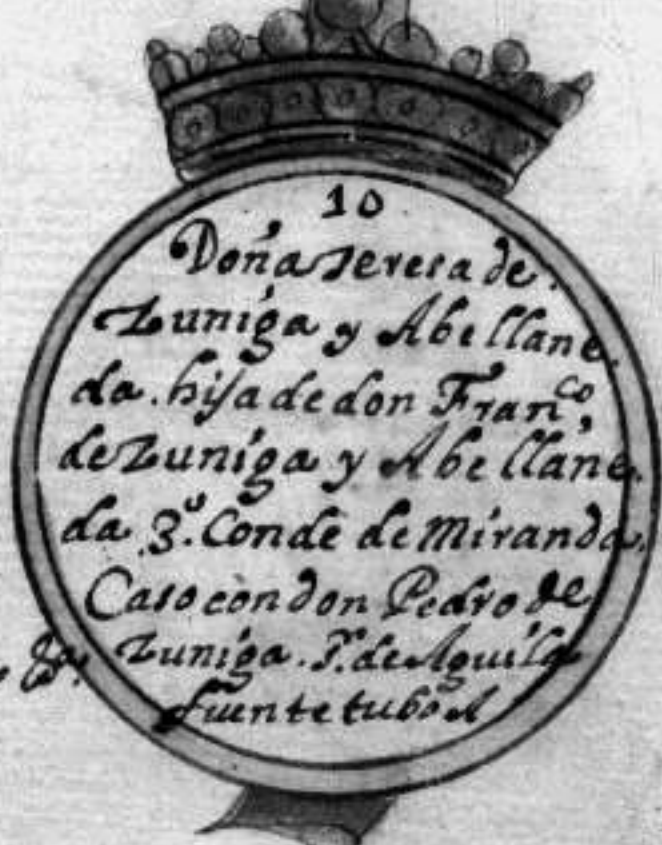 10
Doña Teresa de
Zuniga y Abellane
da. hija de don Fran.co
de Zuniga y Abellane
da 3.º Conde de Miranda.
Caso con don Pedro de
Zuniga. Sr. de Aguila
fuente tubo A